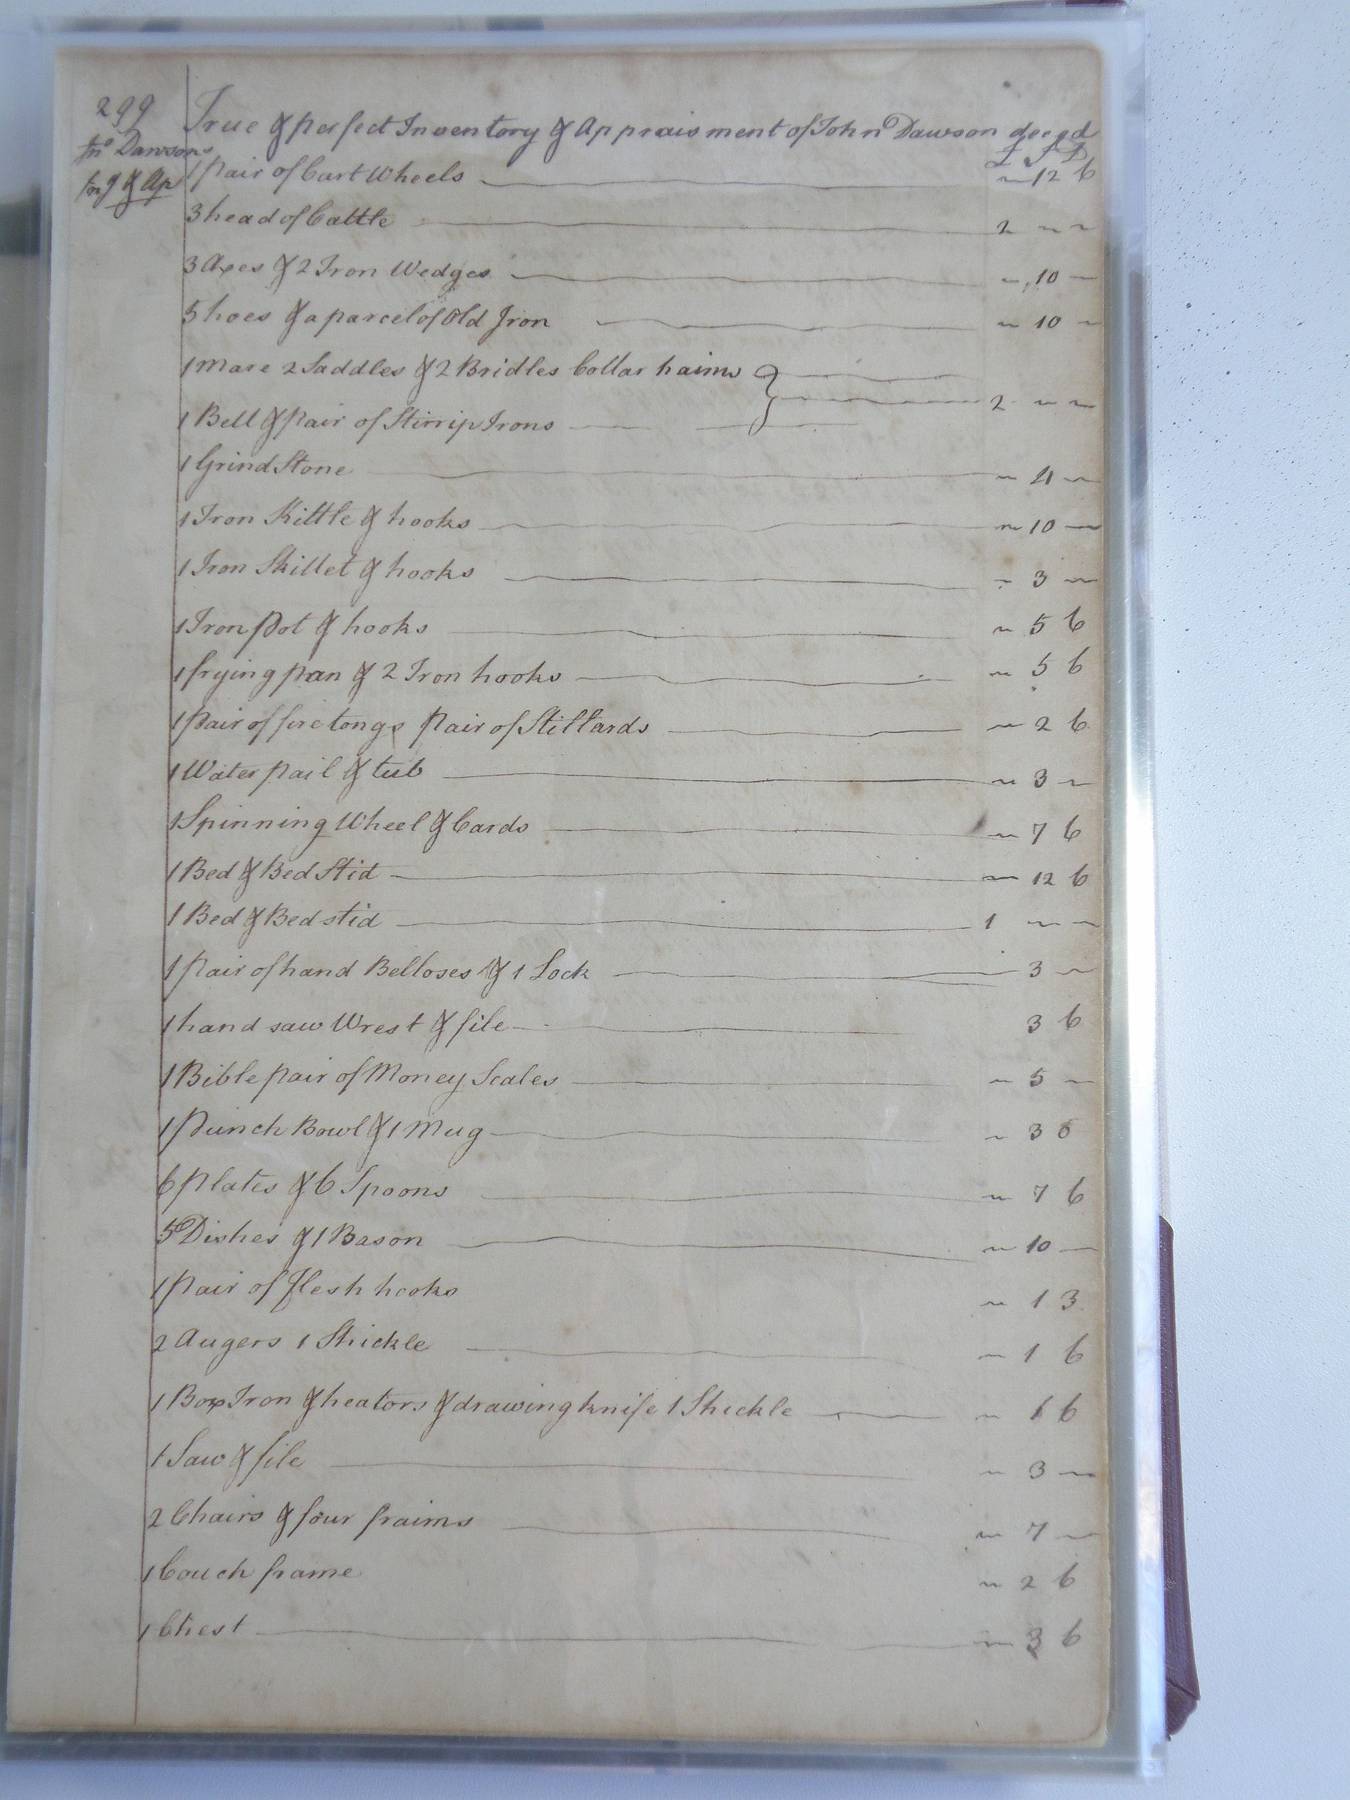 299
True & perfect Inventory & Appraisment of John Dawson decd
Jno Dawsons
Invy & Ap
£ S D
1 pair of Cart Wheels ~ 12 6
3 head of Cattle 2 ~ ~
3 Axes & 2 Iron Wedges ~ 10 ~
5 hoes & a parcel of Old Iron ~ 10 ~
1 Mare 2 Saddles & 2 Bridles Collar haims
1 Bell & pair of Stirrip Irons 2 ~ ~
1 Grind Stone ~ 4 ~
1 Iron Kittle & hooks ~ 10 ~
1 Iron Skillet & hooks ~ 3 ~
1 Iron Pot & hooks ~ 5 6
1 frying pan & 2 Iron hooks ~ 5 6
1 Pair of fire tongs Pair of Stillards ~ 2 6
1 Water pail & tub ~ 3 ~
1 Spinning Wheel & Cards ~ 7 6
1 Bed & Bed Stid ~ 12 6
1 Bed & Bed stid 1 ~ ~
1 pair of hand Belloses & 1 Lock 3 ~
1 hand saw Wrest & file 3 6
1 Bible pair of Money Scales ~ 5 ~
1 Punch Bowl & 1 Mug ~ 3 6
6 Plates & 6 Spoons ~ 7 6
5 Dishes & 1 Bason ~ 10 ~
1 pair of flesh hooks ~ 1 3
2 Augers 1 Shickle ~ 1 6
1 Box Iron & heators & drawing knife 1 Shickle ~ 6
1 Saw & file ~ 3 ~
2 Chairs & four fraims ~ 7 ~
1 Couch frame ~ 2 6
1 Chest ~ 3 6